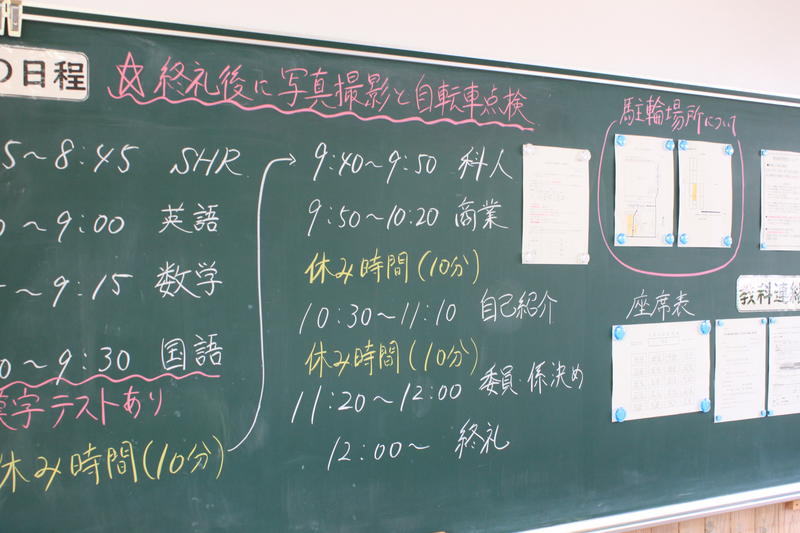 の日程
☆終礼後に写真撮影と自転車点検
5～8:45 SHR
0～9:00 英語
～9:15 数学
0～9:30 国語
漢字テストあり
休み時間(10分)
9:40～9:50 科人
9:50～10:20 商業
休み時間(10分)
10:30～11:10 自己紹介
休み時間(10分)
11:20～12:00 委員・係決め
12:00～ 終礼
駐輪場所について
座席表
教科連絡